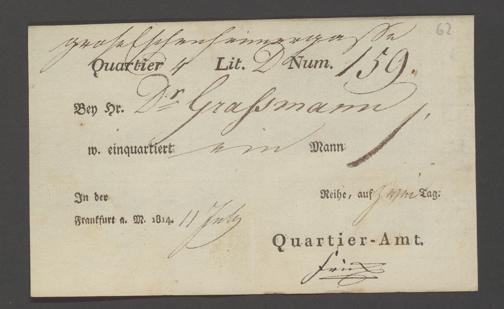 große Eschenheimergasse
Quartier 4 Lit. D Num. 159.
Bey Hr. Dr Grassmann
w. einquartiert ein Mann 1
In der Reihe, auf zwei Tag.
Frankfurt a. M. 1814. 11 July
Quartier-Amt.
62